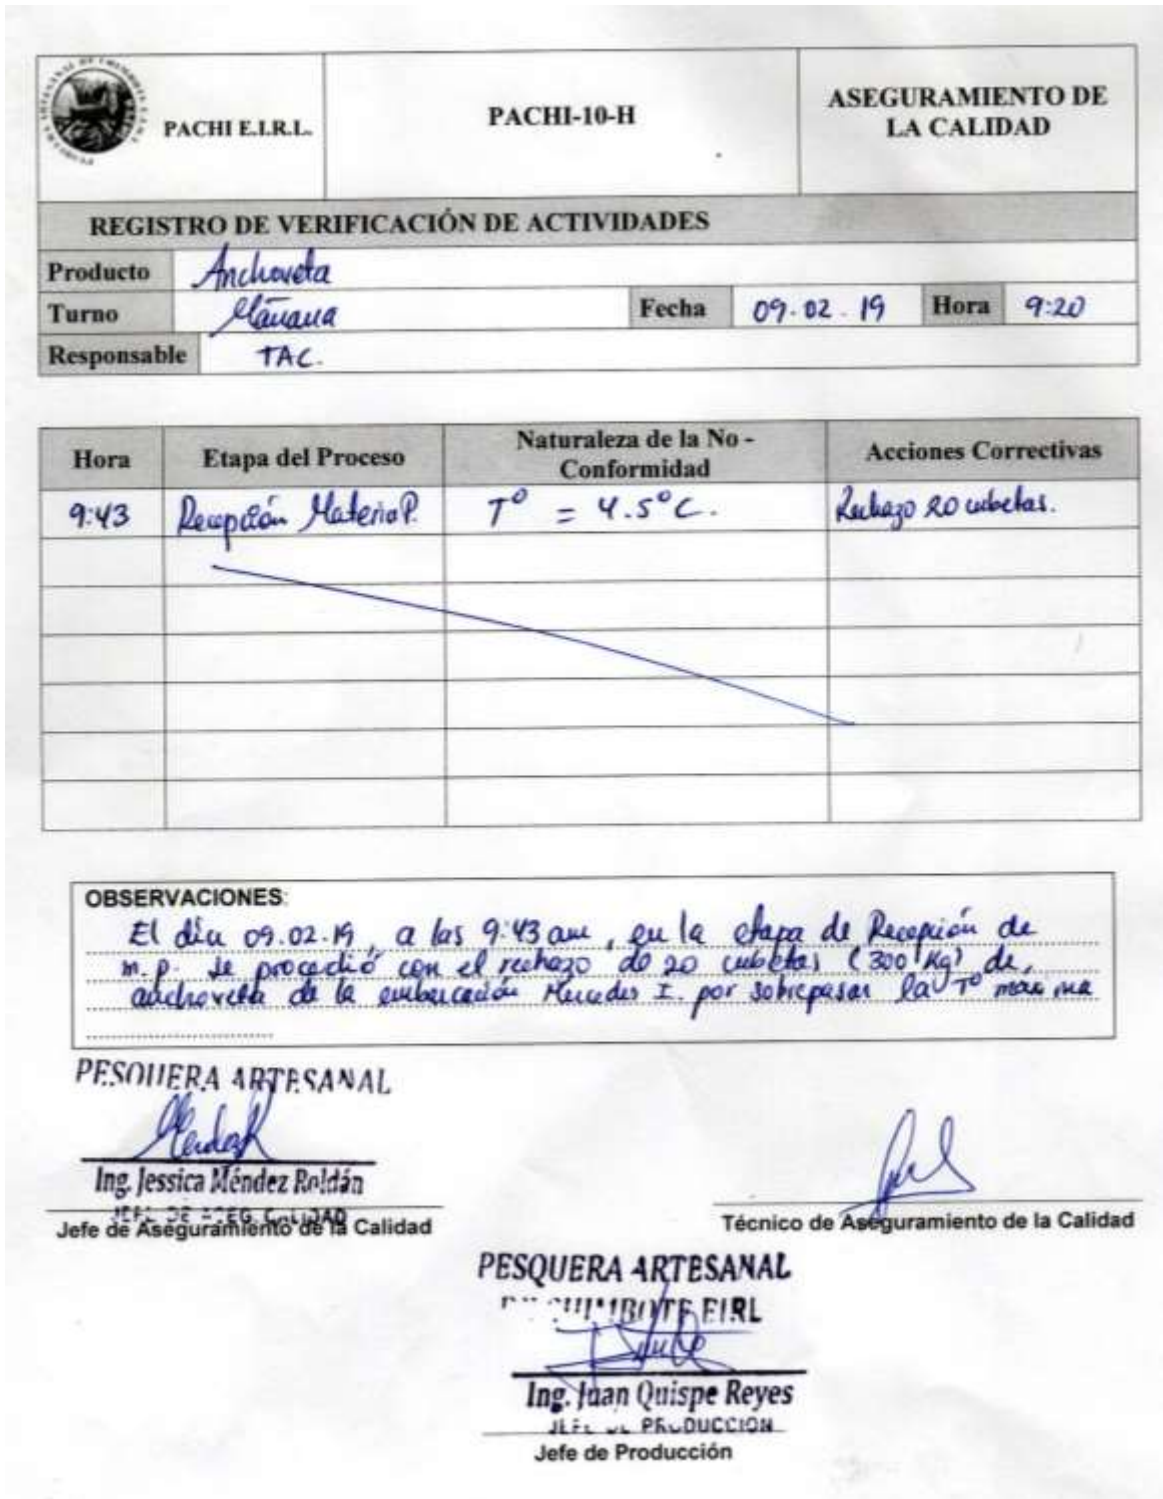 PACHI E.I.R.L.
PACHI-10-H
ASEGURAMIENTO DE
LA CALIDAD
REGISTRO DE VERIFICACIÓN DE ACTIVIDADES
Producto Anchoveta
Turno Mañana Fecha 09.02.19 Hora 9:20
Responsable TAC.
Hora Etapa del Proceso Naturaleza de la No - Conformidad Acciones Correctivas
9:43 Recepción Materia P. T° = 4.5°C. Rechazo 20 cubetas.
OBSERVACIONES:
El día 09.02.19, a las 9:43 am, en la etapa de Recepción de
m.p. se procedió con el rechazo de 20 cubetas (300 Kg) de
anchoveta de la embarcación Mercedes I. por sobrepasar la T° maxima
PESQUERA ARTESANAL
Ing. Jessica Méndez Roldán
JEFE DE ASEG. CALIDAD
Jefe de Aseguramiento de la Calidad
Técnico de Aseguramiento de la Calidad
PESQUERA ARTESANAL
DE CHIMBOTE EIRL
Ing. Juan Quispe Reyes
JEFE DE PRODUCCION
Jefe de Producción